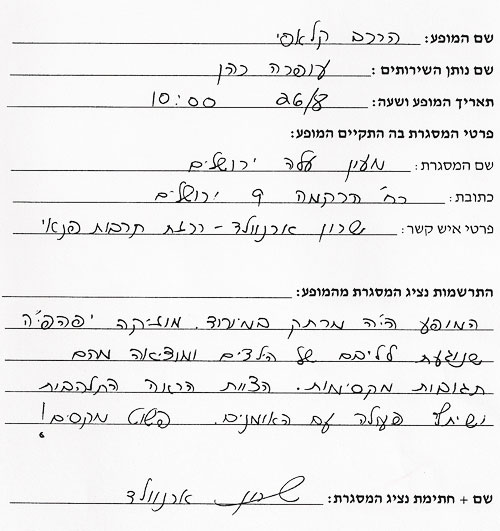 שם המופע: הרכב קלאסי
שם נותן השירותים: עופרה כהן
תאריך המופע ושעה: 10:00
פרטי המסגרת בה התקיים המופע:
שם המסגרת: מעון עלה ירושלים
כתובת: רח' הרקמה 9 ירושלים
פרטי איש קשר: שרון ארנוולד - רכזת תרבות פנאי
התרשמות נציג המסגרת מהמופע:
המופע היה מרתק במיוחד. מוזיקה יפהפיה
שנוגעת לליבם של הילדים ומוציאה מהם
תגובות מקסימות. הצוות הראה התלהבות
ושיתף פעולה עם האומנים. פשוט מקסים!
שם + חתימת נציג המסגרת: שרון ארנוולד